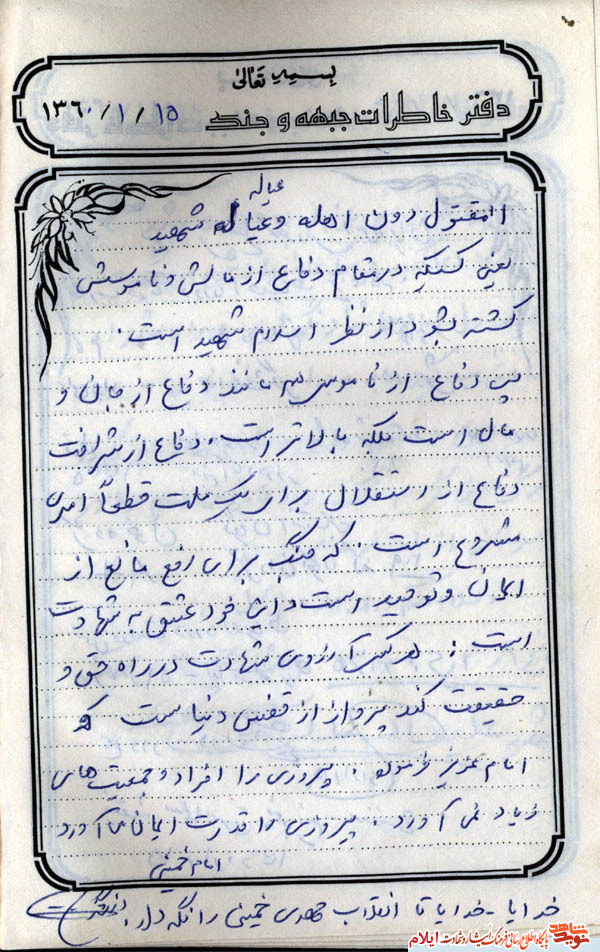 بسمه تعالی
دفتر خاطرات جبهه و جنگ
۱۳۶۰/۱/۱۵
عیاله
المقتول دون اهله و عیاله شهید
یعنی کسیکه در مقام دفاع از مالش و ناموسش
کشته بشود از نظر اسلام شهید است.
پس دفاع از ناموس هم مانند دفاع از جان و
مال است بلکه بالاتر است. دفاع از شرافت
دفاع از استقلال برای یک ملت قطعاً امری
مشروع است. که جنگ برای رفع مانع از
ایمان و توحید است و این خود عشق به شهادت
است: هر کس آرزوی شهادت در راه حق و
حقیقت کند پرواز از قفس دنیا است که
امام عزیز فرموده: پیروزی را افراد و جمعیت های
زیاد نمی آورد. پیروزی را قدرت ایمان می آورد
امام خمینی
خدایا - خدایا تا انقلاب مهدی خمینی را نگه دار.
نوید شاهد
پایگاه اطلاع رسانی فرهنگ ایثار و شهادت ایلام